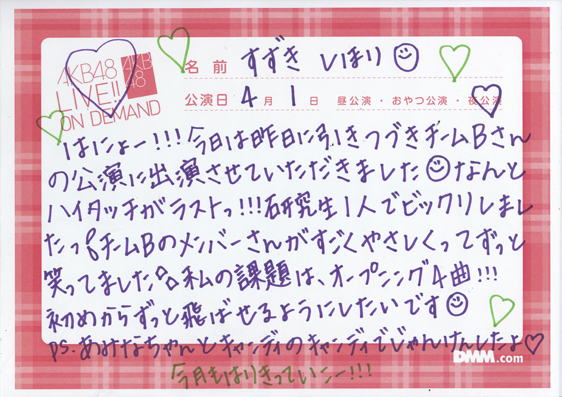 AKB48
LIVE!!
ON DEMAND
AKB
48
名前 すずき しほり
公演日 4月1日 昼公演・おやつ公演・夜公演
はにょー!!!今日は昨日に引きつづきチームBさん
の公演に出演させていただきました なんと
ハイタッチがラストっ!!!研究生1人でビックリしまし
たっ チームBのメンバーさんがすごくやさしくってずっと
笑ってました 私の課題は、オープニング4曲!!!
初めからずっと飛ばせるようにしたいです
PS.あみなちゃんとキャンディのキャンディでじゃんけんしたよ♡
DMM.com
今月もはりきっていこー!!!